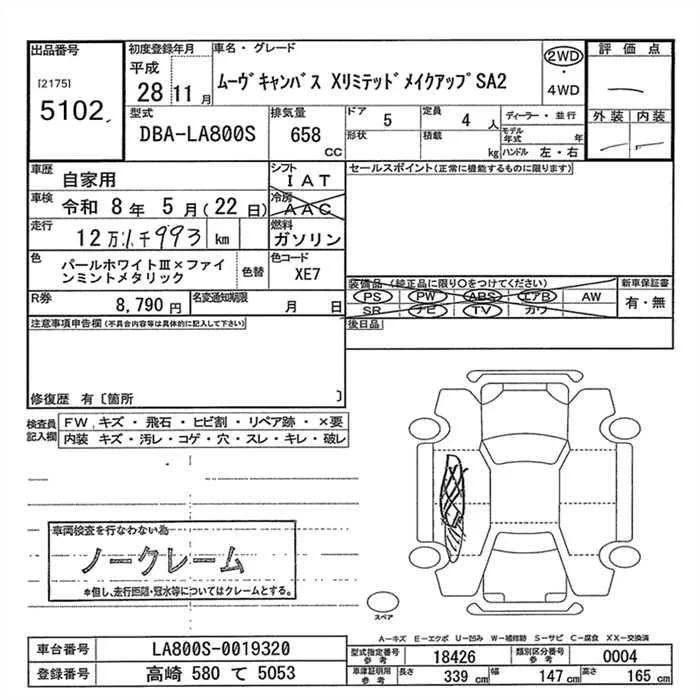 出品番号
[2175]
5102
初度登録年月
平成
28年11月
車名・グレード
ムーヴキャンバス XリミテッドメイクアップSA2
2WD
・
4WD
評価点
外装 内装
型式
DBA-LA800S
排気量
658
CC
ドア
5
定員
4人
形状
積載
kg
ディーラー・並行
モデル年式 年
ハンドル 左・右
車歴
自家用
シフト
IAT
車検
令和 8年 5月(22日)
冷房
AAC
走行
12万 千993 km
燃料
ガソリン
色
パールホワイトⅢ×ファインミントメタリック
色替
色コード
XE7
R券
8,790円
名変通知期限
月 日
セールスポイント(正常に機能するものに限ります)
装備品(純正品に限り○をつけてください)
PS PW ABS エアB AW
SR ナビ TV カワ
新車保証書
有・無
後日品
注意事項申告欄(不具合内容等は具体的に記入して下さい)
修復歴 有〔箇所 〕
検査員記入欄
FW, キズ・飛石・ヒビ割・リペア跡・×要
内装 キズ・汚レ・コゲ・穴・スレ・キレ・破レ
車両検査を行なわない為
ノークレーム
*但し、走行距離・冠水等についてはクレームとする。
スペア
A-キズ E-エクボ U-凹み W-補修跡 S-サビ C-腐食 XX-交換済
車台番号
LA800S-0019320
登録番号
高崎 580 て 5053
型式指定番号
参考
18426
類別区分番号
参考
0004
車庫証明用
参考
長さ
339 cm
幅
147 cm
高さ
165 cm